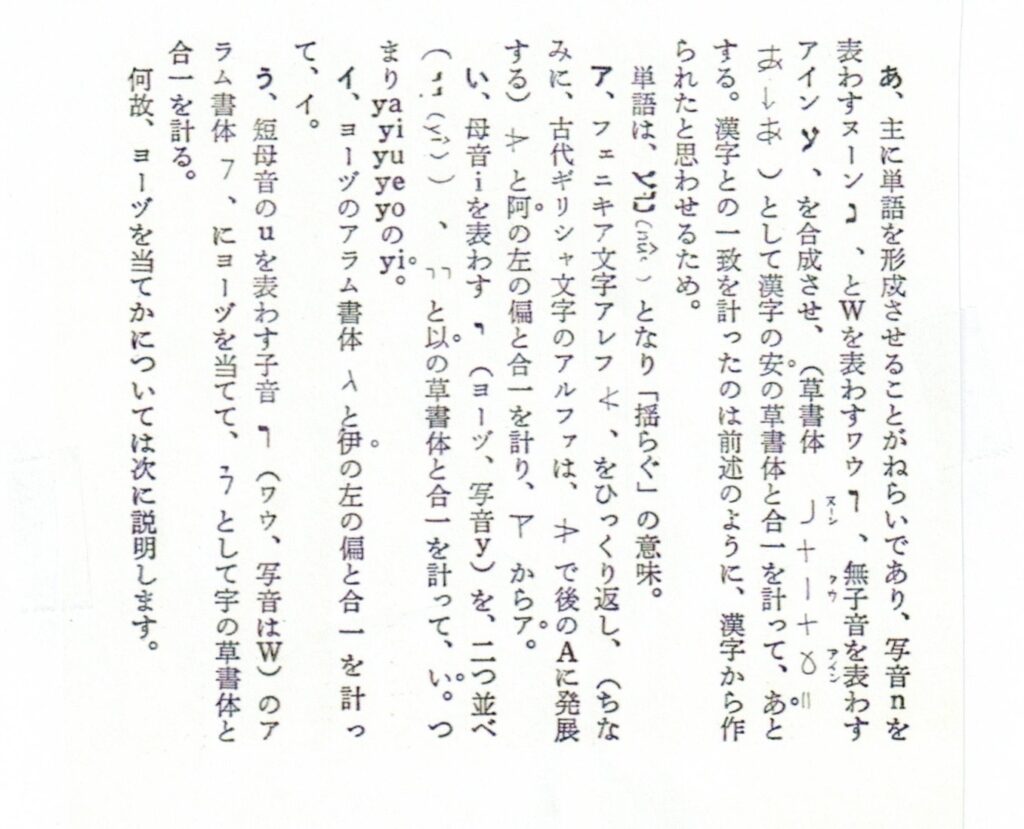 あ、主に単語を形成させることがねらいであり、写音nを
表わすヌーン נ 、とWを表わすワウ ו 、無子音を表わす
アイン ע 、を合成させ、(草書体
ヌーン ワウ アイン
あ→あ)として漢字の安の草書体と合一を計って、あと
する。漢字との一致を計ったのは前述のように、漢字から作
られたと思わせるため。
単語は、(nû‘)となり「揺らぐ」の意味。
ア、フェニキア文字アレフ 、をひっくり返し、(ちな
みに、古代ギリシャ文字のアルファは、 で後のAに発展
する) と阿の左の偏と合一を計り、 からア。
い、母音iを表わす י (ヨーヅ、写音y)を、二つ並べ
( )、 と以の草書体と合一を計って、い。つ
まりya yi yu ye yoのyi。
イ、ヨーヅのアラム書体 と伊の左の偏と合一を計っ
て、イ。
う、短母音のuを表わす子音 ו (ワウ、写音はW)のア
ラム書体 、にヨーヅを当てて、 として字の草書体と
合一を計る。
何故、ヨーヅを当てかについては次に説明します。